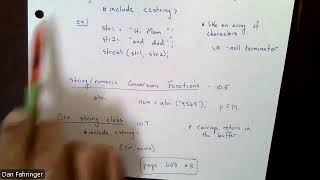 # include <cstring>
ex
str1 = "Hi Mom";
str2 = "and dad";
strcat (str1, str2);
* like an array of
characters
\0 - null terminator
String/numeric Conversion Functions - 10.5
atoi
num = atoi ("5569");
p 579
string class 10.7
# include <string>
(cin, name)
* carriage return in
the buffer
page 609 #8
Dan Fahringer